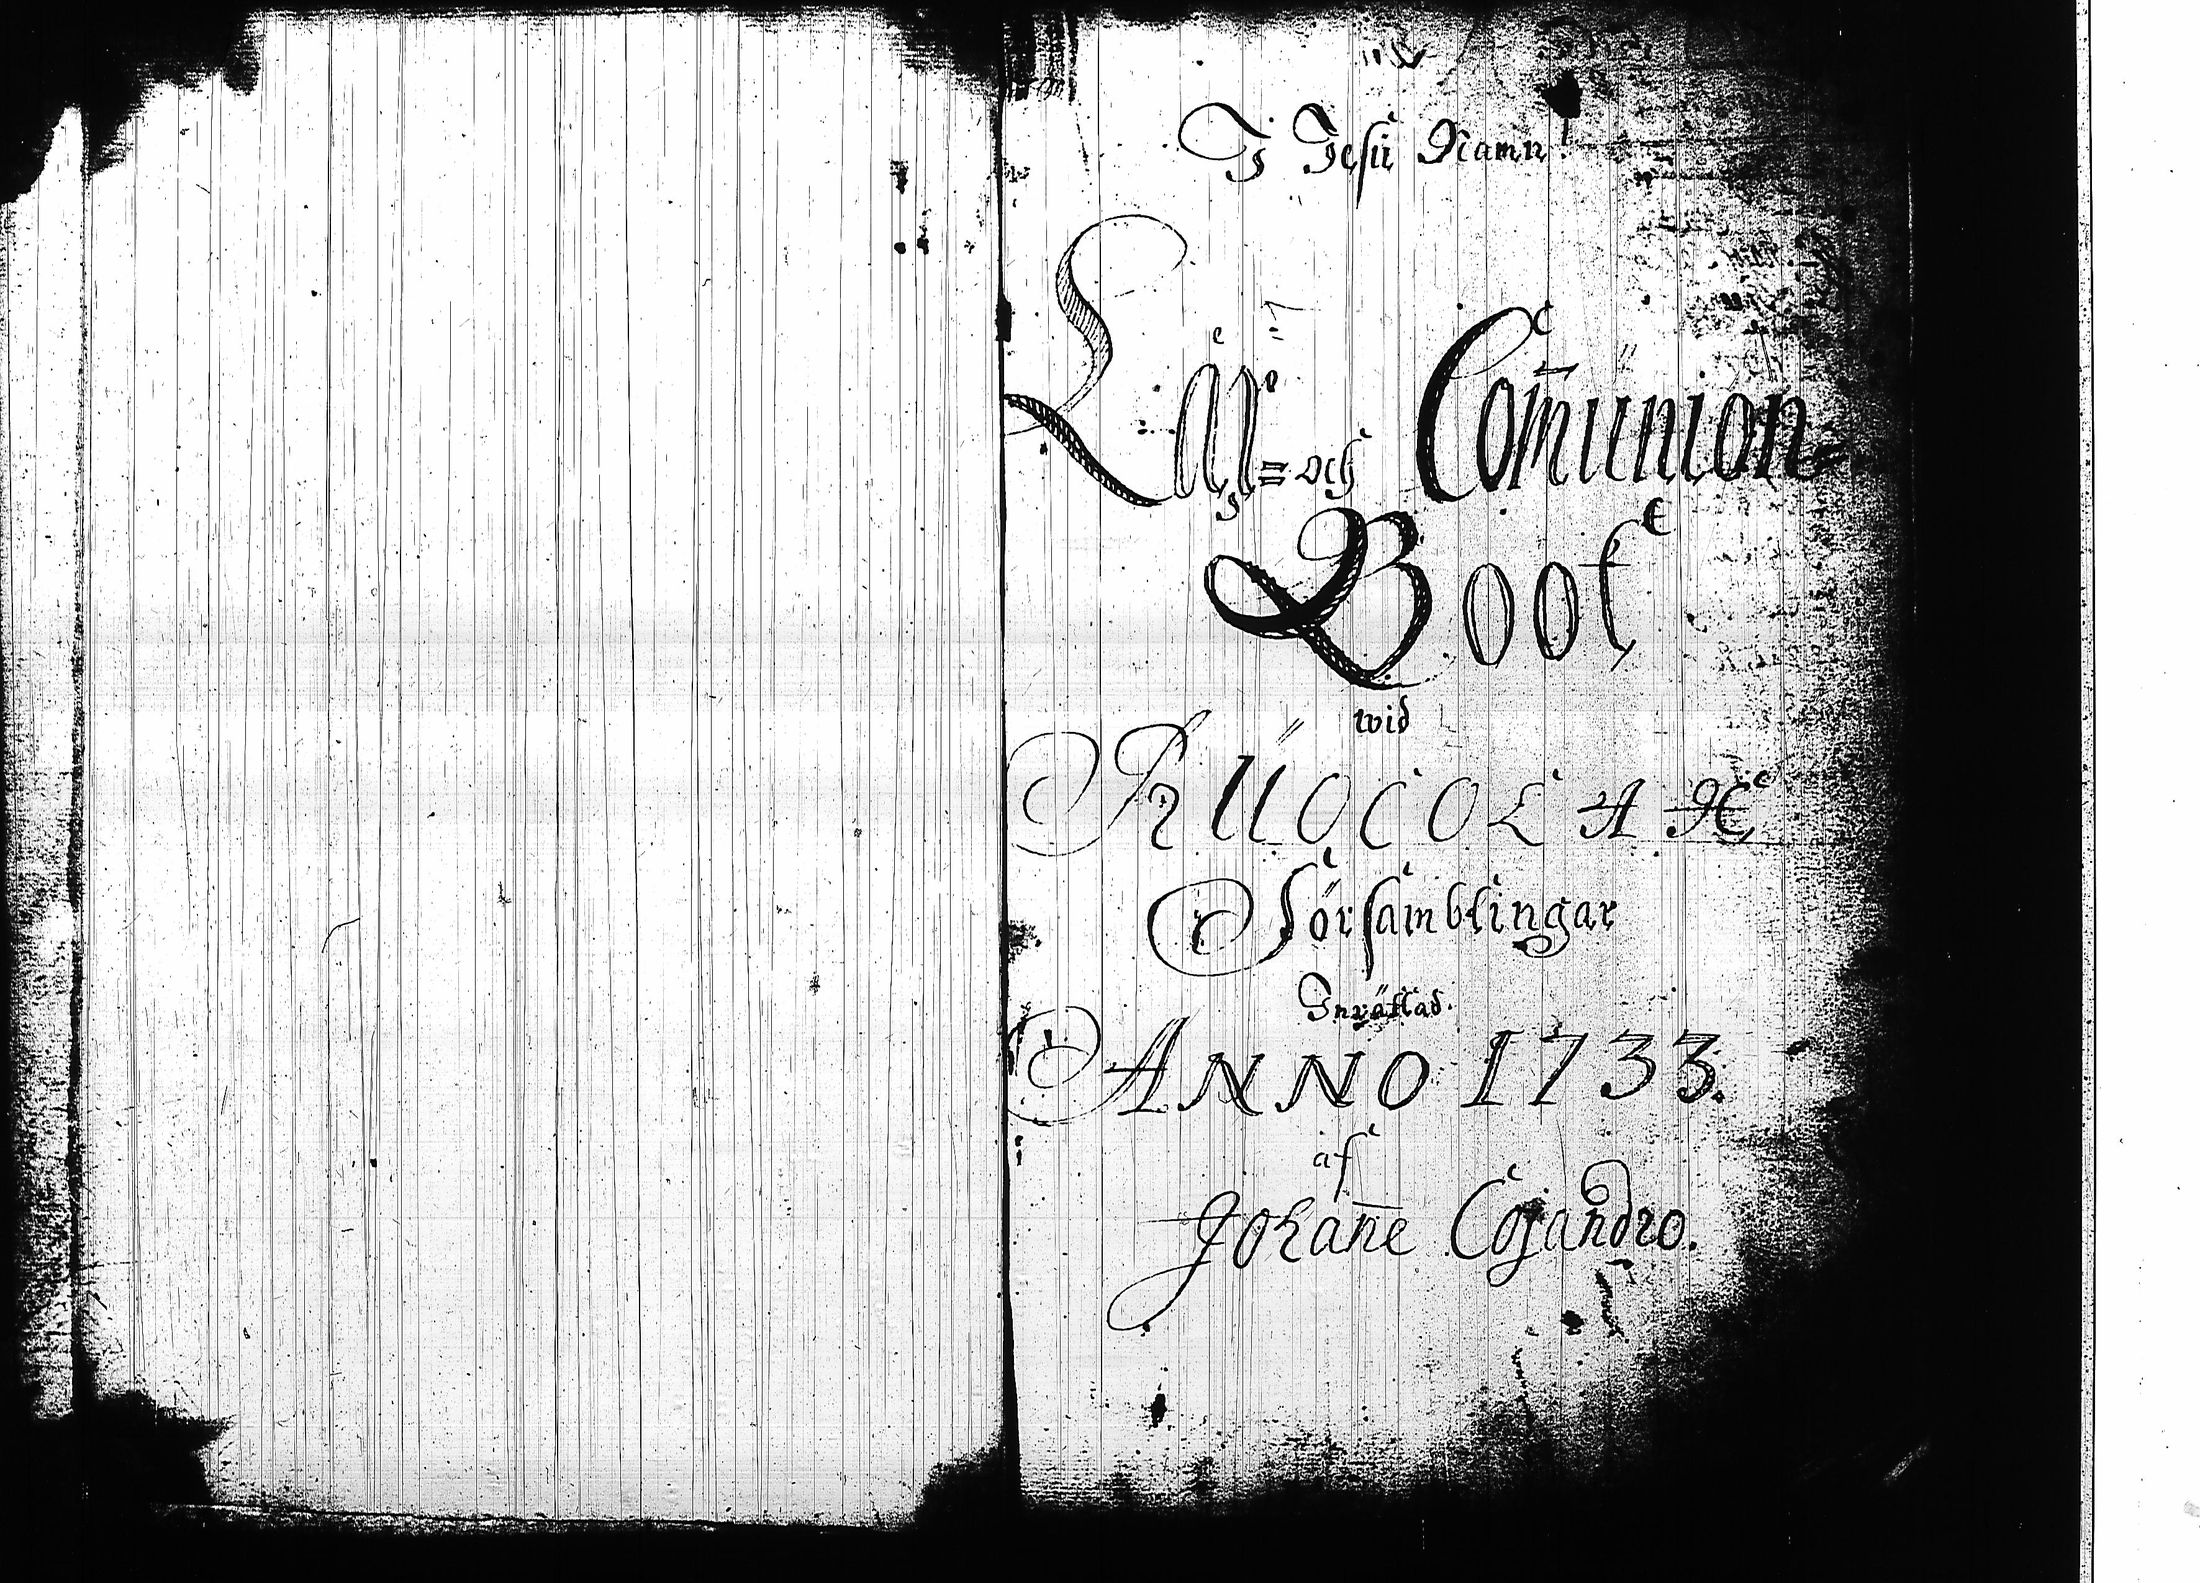 I Jesu Namn!
Läs= och Com̅union=
Book
wid
RUOCOLAX
Församblingar
Inrättad.
ANNO 1733.
af
Johan̅e Cajandro.